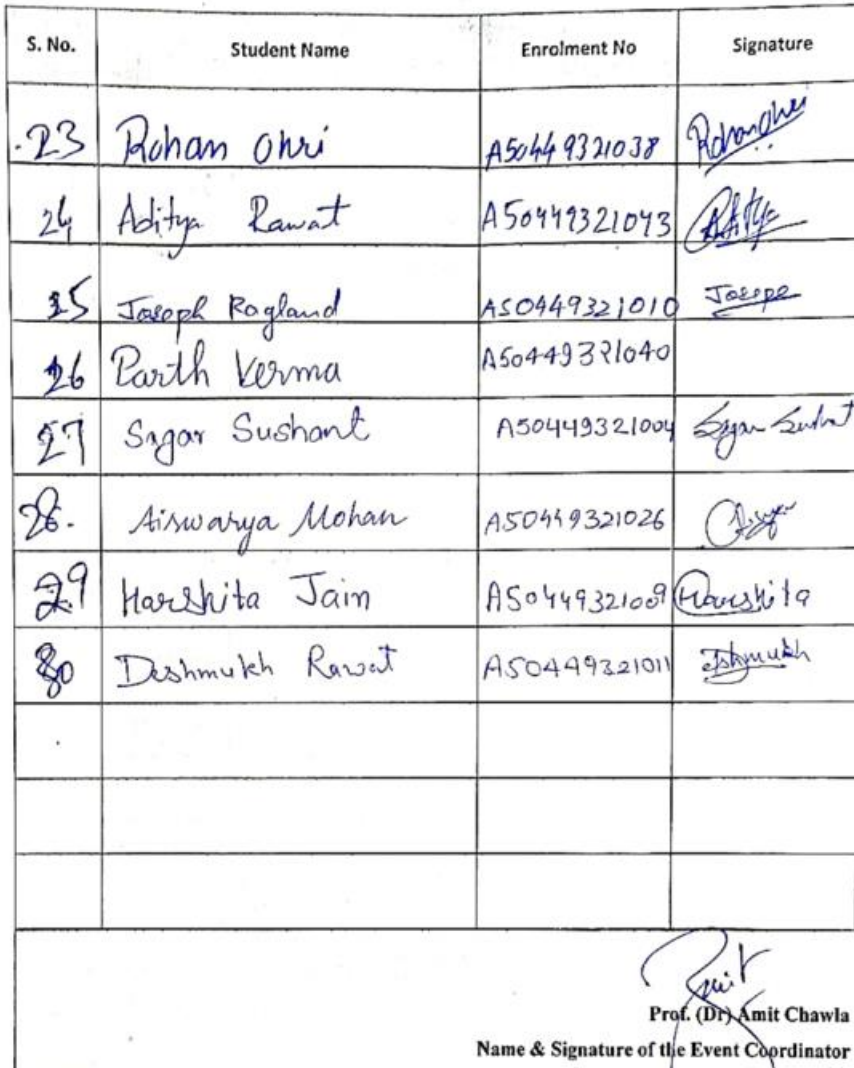 S. No. Student Name Enrolment No Signature
23 Rohan Ohri A50449321038 Rohan Ohri
24 Aditya Rawat A50449321043 Aditya
25 Joseph Ragland A50449321010 Josepe
26 Parth Verma A50449321040
27 Sagar Sushant A50449321004 Sagar Sushant
28. Aiswarya Mohan A50449321026
29 Harshita Jain A50449321009 Harshita
30 Deshmukh Rawat A50449321011
Prof. (Dr) Amit Chawla
Name & Signature of the Event Coordinator